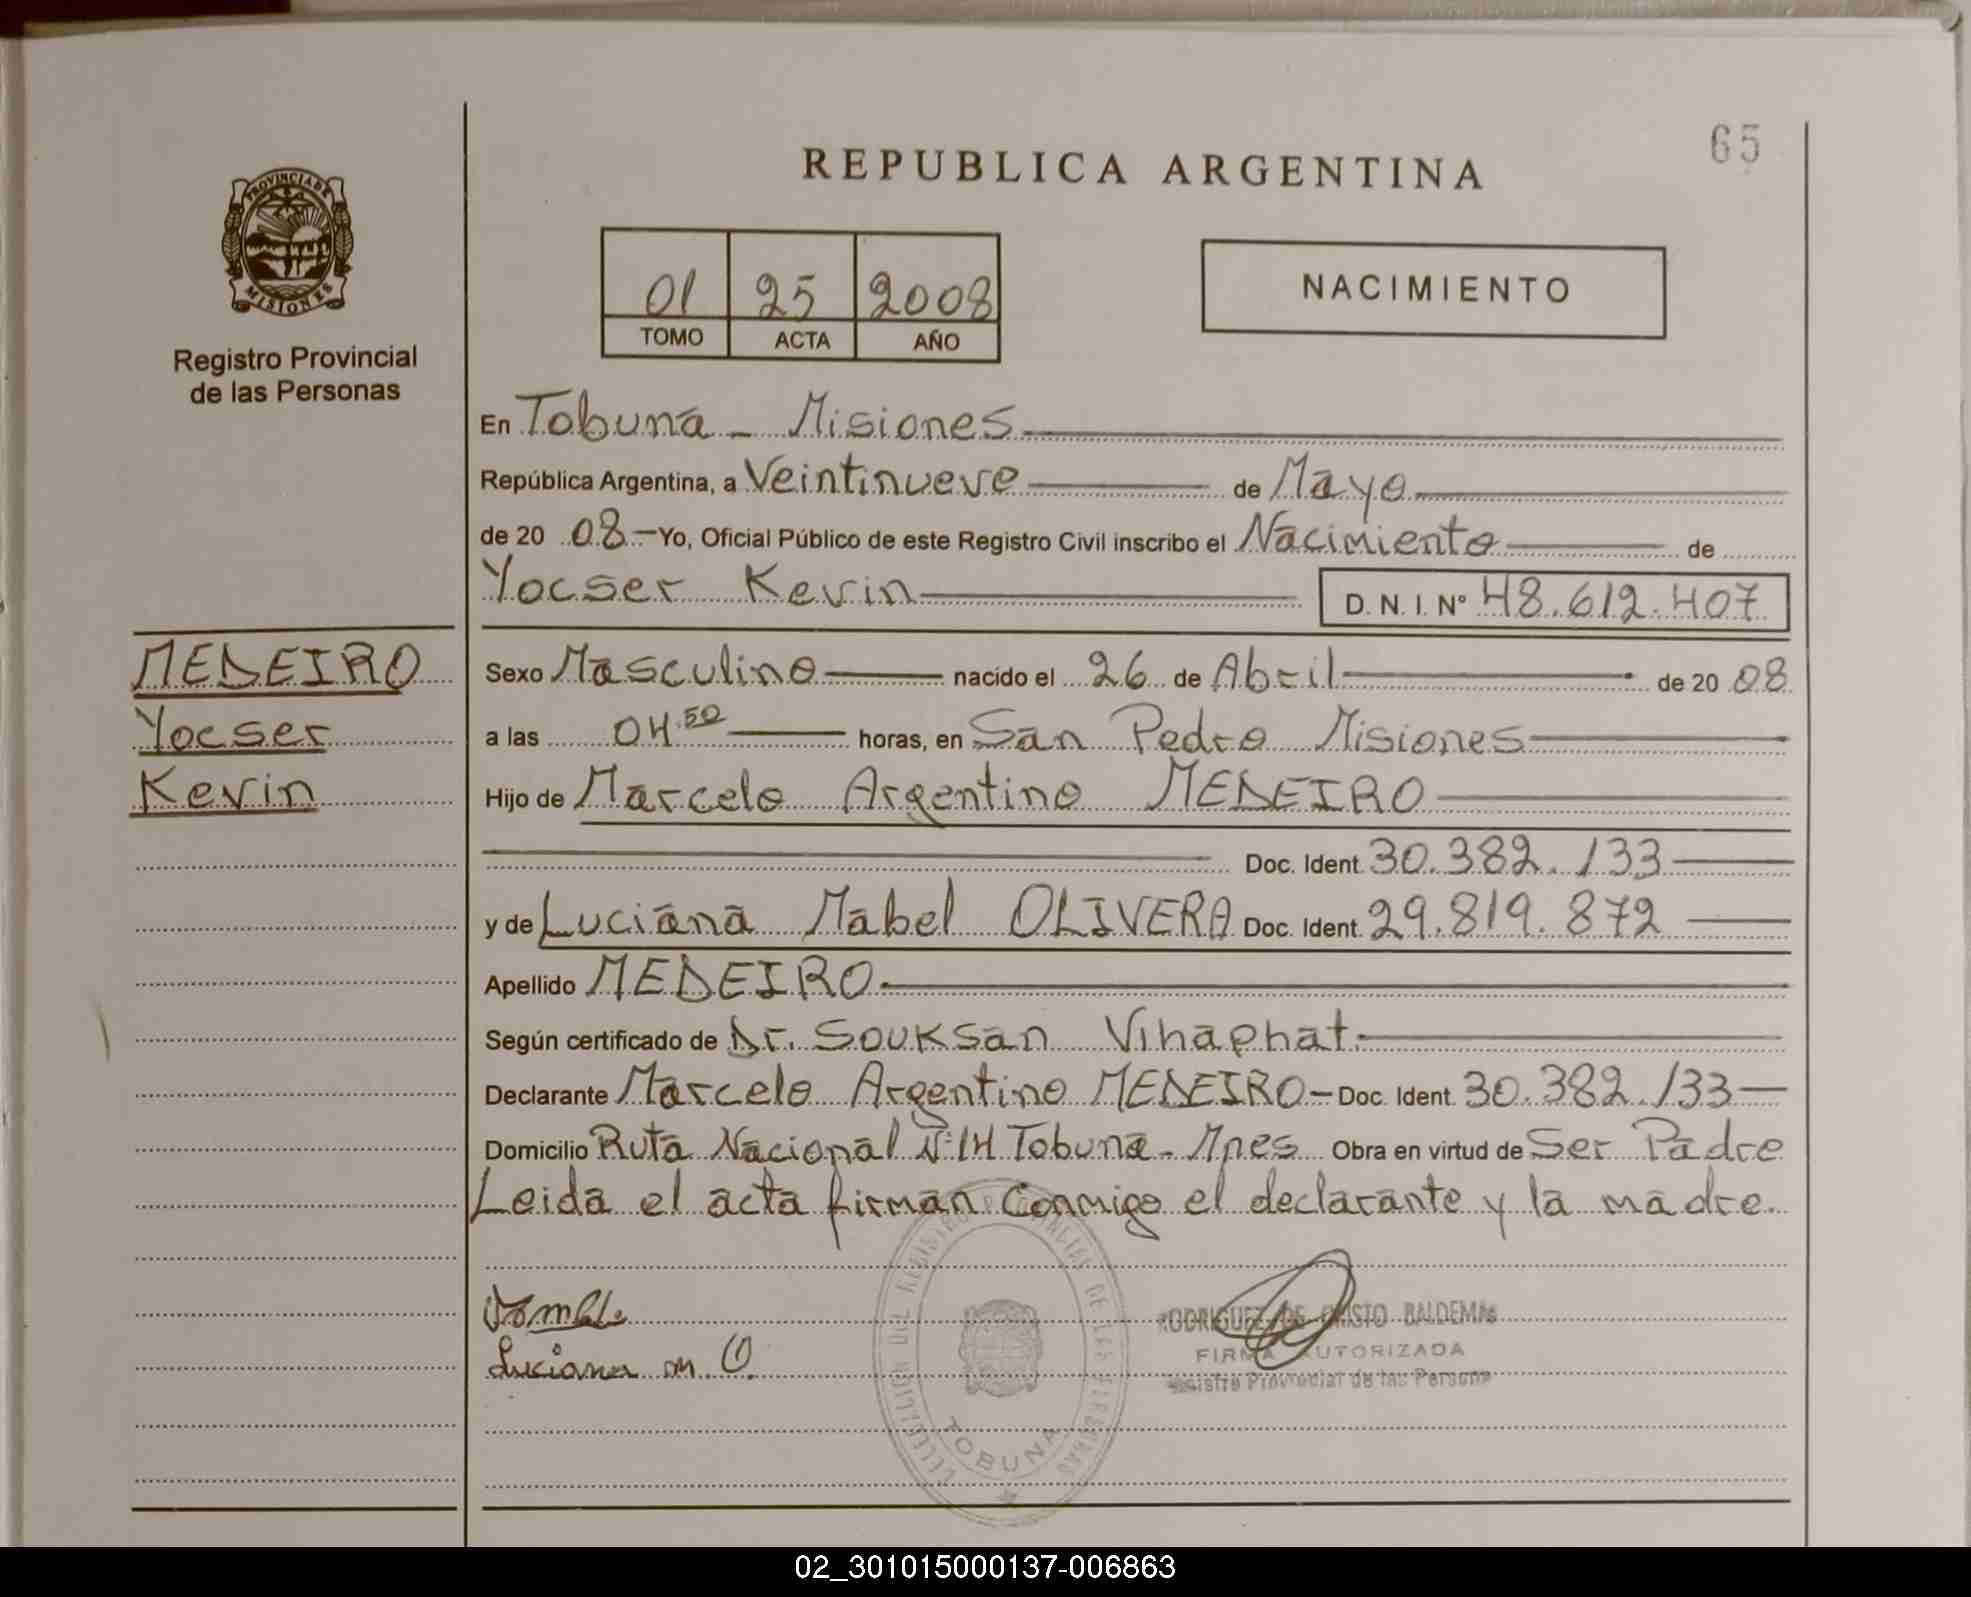 65
REPUBLICA ARGENTINA
PROVINCIA DE
MISIONES
Registro Provincial
de las Personas
01 25 2008
TOMO ACTA AÑO
NACIMIENTO
En Tobuna - Misiones
República Argentina, a Veintinueve de Mayo
de 20 08 - Yo, Oficial Público de este Registro Civil inscribo el Nacimiento de
Yocser Kevin D. N. I. Nº 48.612.407
MEDEIRO
Yocser
Kevin
Sexo Masculino nacido el 26 de Abril de 20 08
a las 04.50 horas, en San Pedro Misiones
Hijo de Marcelo Argentino MEDEIRO
Doc. Ident. 30.382.133
y de Luciana Mabel OLIVERA Doc. Ident. 29.819.872
Apellido MEDEIRO
Según certificado de Dr. Souksan Vihaphat.
Declarante Marcelo Argentino MEDEIRO - Doc. Ident. 30.382.133
Domicilio Ruta Nacional Nº 14 Tobuna - Mnes Obra en virtud de Ser Padre
Leida el acta firman conmigo el declarante y la madre.
Luciana M. O.
RODRIGUEZ DE CRISTO BALDEMAR
FIRMA AUTORIZADA
Registro Provincial de las Personas
DELEGACION DEL REGISTRO PROVINCIAL DE LAS PERSONAS
TOBUNA
02_301015000137-006863